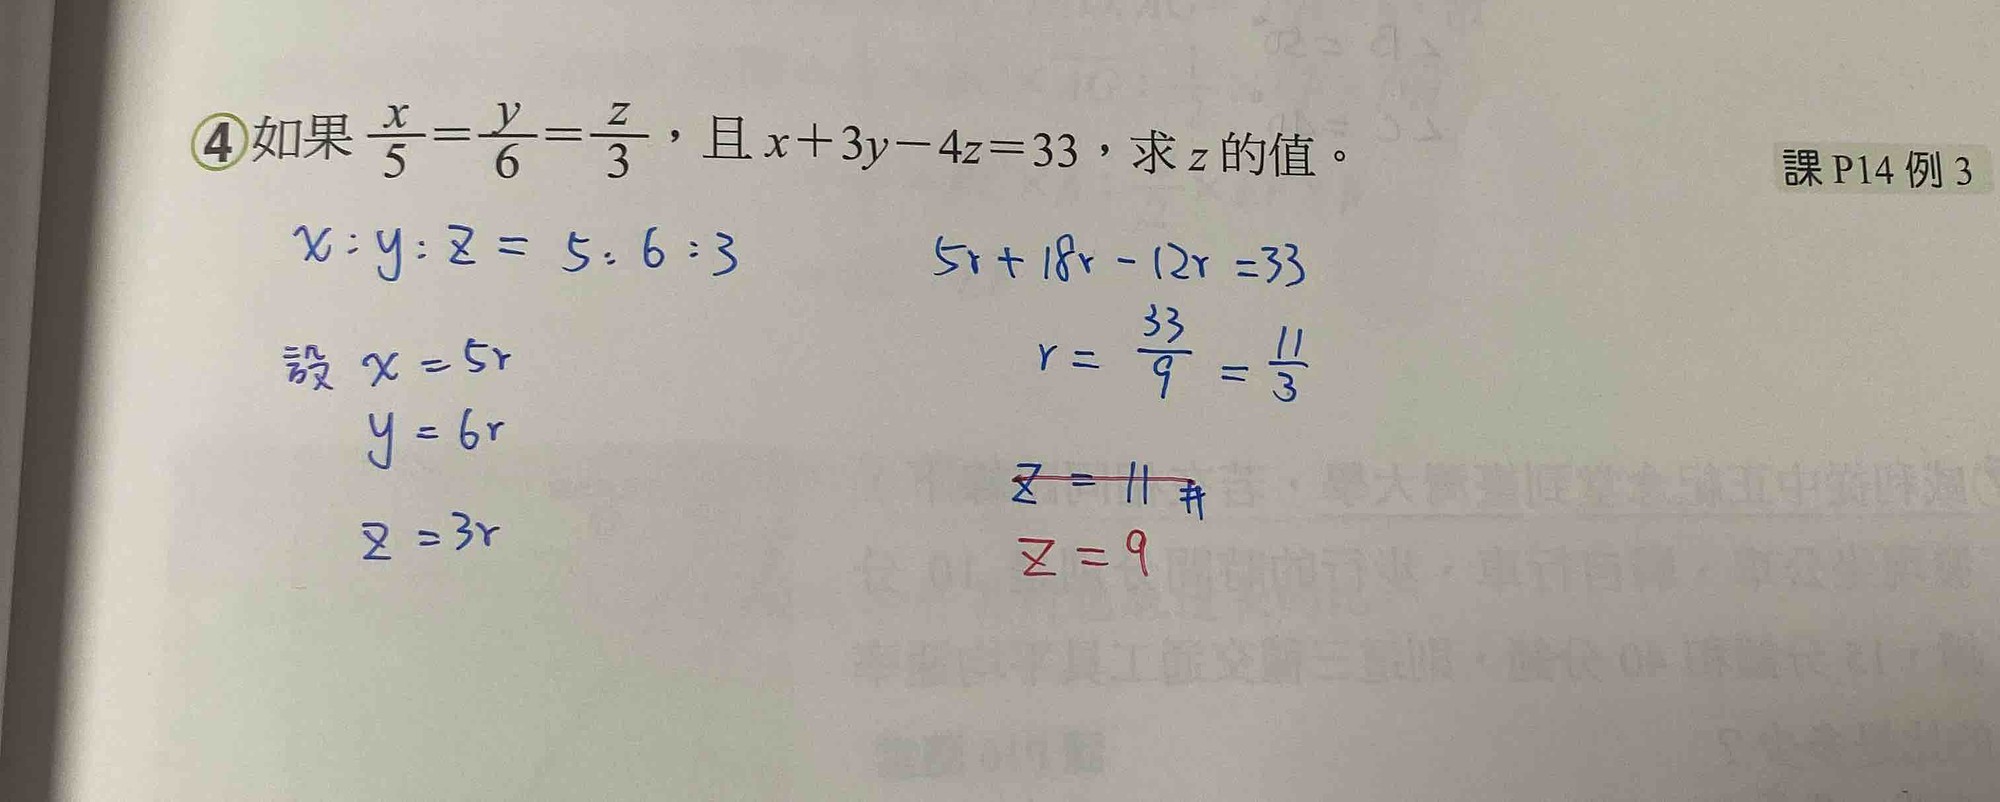 ④如果 x/5=y/6=z/3，且 x+3y-4z=33，求 z 的值。
課 P14 例 3
x:y:z = 5:6:3
設 x = 5r
y = 6r
z = 3r
5r + 18r - 12r = 33
r = 33/9 = 11/3
z = 11 #
z = 9